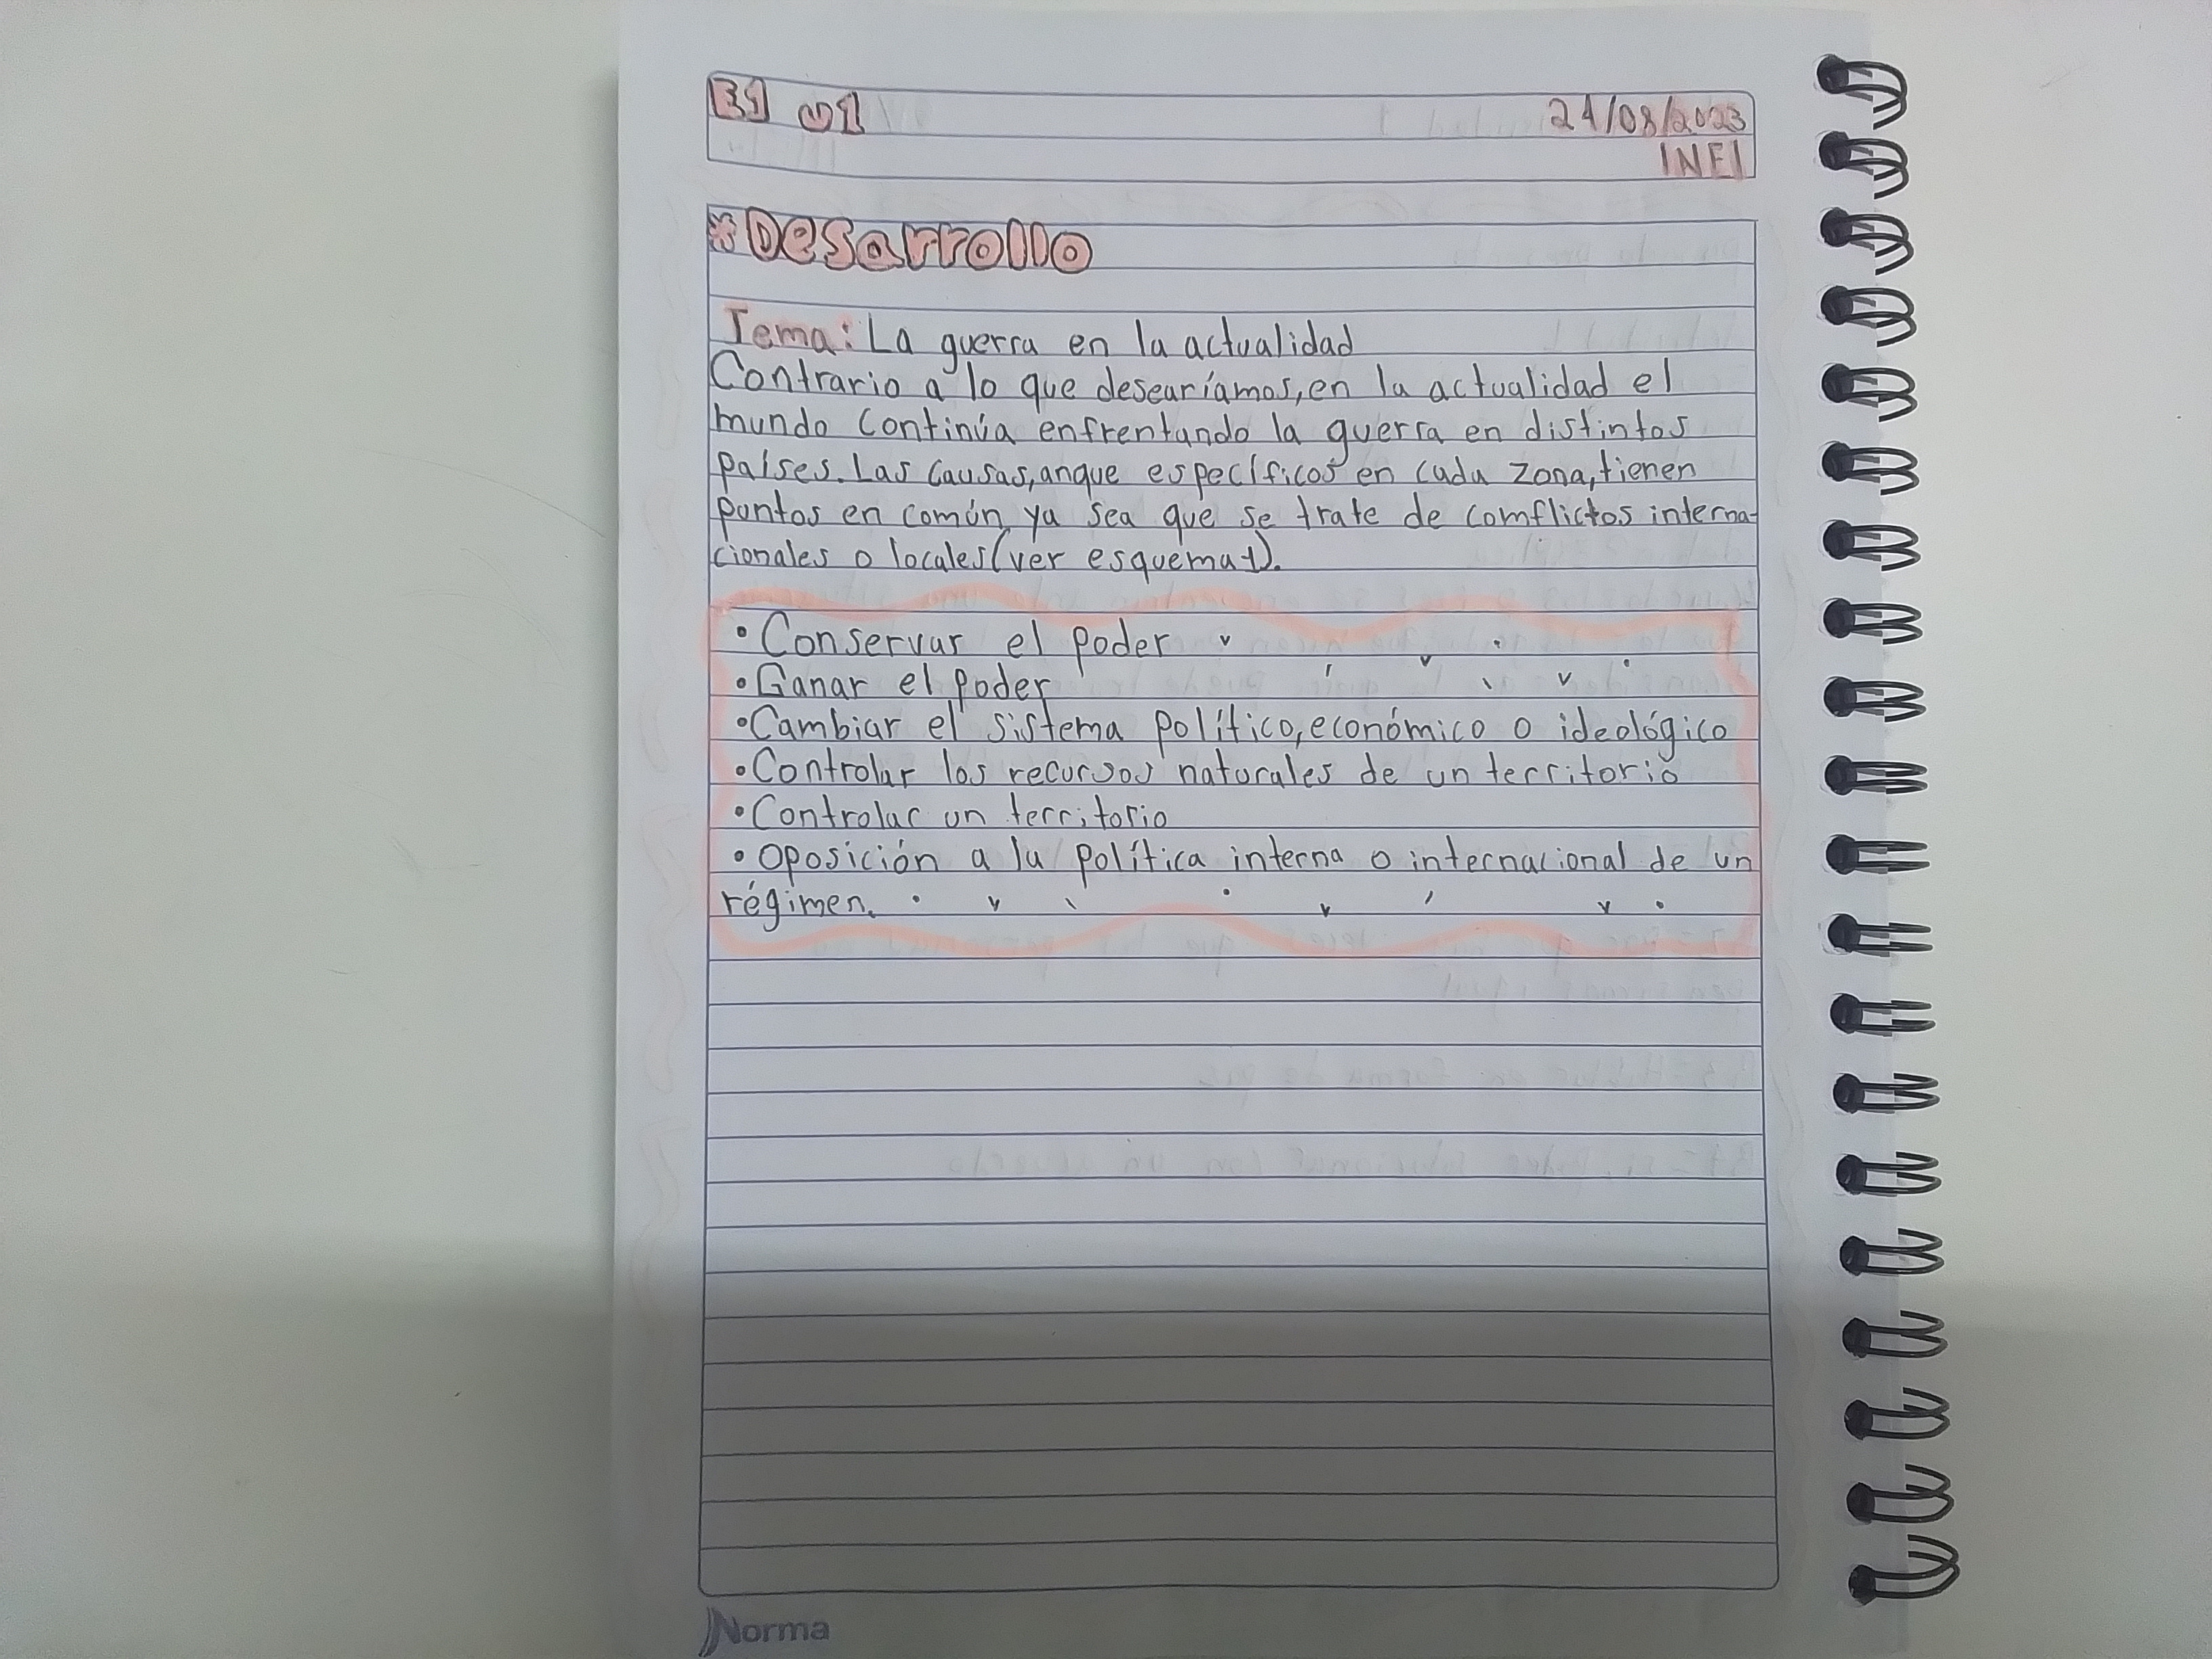 B1 U1
21/08/2023
INEI
*Desarrollo
Tema: La guerra en la actualidad
Contrario a lo que desearíamos, en la actualidad el
mundo continúa enfrentando la guerra en distintos
países. Las causas, anque específicos en cada zona, tienen
puntos en común, ya sea que se trate de comflictos interna-
cionales o locales (ver esquema 1).
• Conservar el poder
• Ganar el poder
• Cambiar el sistema político, económico o ideológico
• Controlar los recursos naturales de un territorio
• Controlar un territorio
• Oposición a la política interna o internacional de un
régimen.
Norma